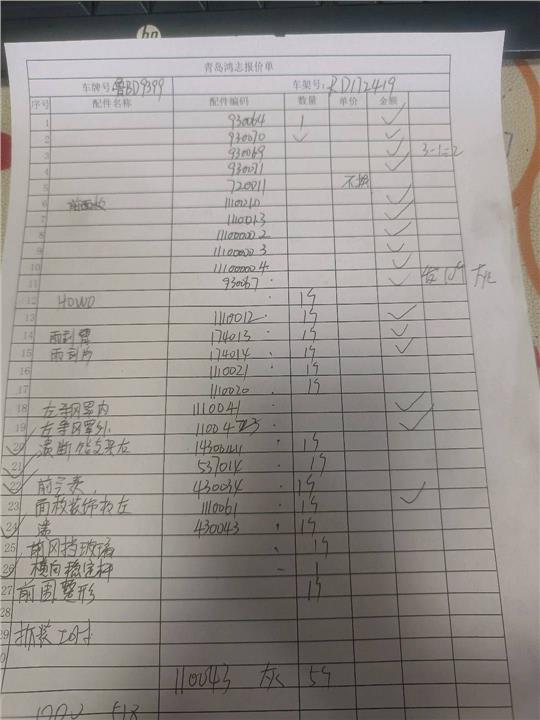 hp
青岛鸿志报价单
车牌号: 鲁BD9399 车架号: RD172419
序号 配件名称 配件编码 数量 单价 金额
1 930064 1 ✓
2 930070 ✓ ✓
3 930069 ✓ 3-1=2
4 930071 ✓
5 720011 不换
6 1110210 ✓
7 1100013 ✓
8 11100002 ✓
9 11100003 ✓
10 11100004 ✓
11 930067 ✓
12 HOWO 1个
13 1110012 1个 ✓
14 雨刮臂 174013 1个 ✓
15 雨刮片 174014 1个 ✓
16 1110021 1个
17 1110020 1个
18 左导风罩内 1110041 ✓
19 左导风罩外 ✓
20 左 1个
21 537014 1个
22 430034 1个
23 面板装饰板左 1110061 1个 ✓
24 430043 1个
25 前风挡玻璃 1个
26 横向稳定杆 1
27 前围整形 1个
28
29 拆装工时
110043 灰 5个